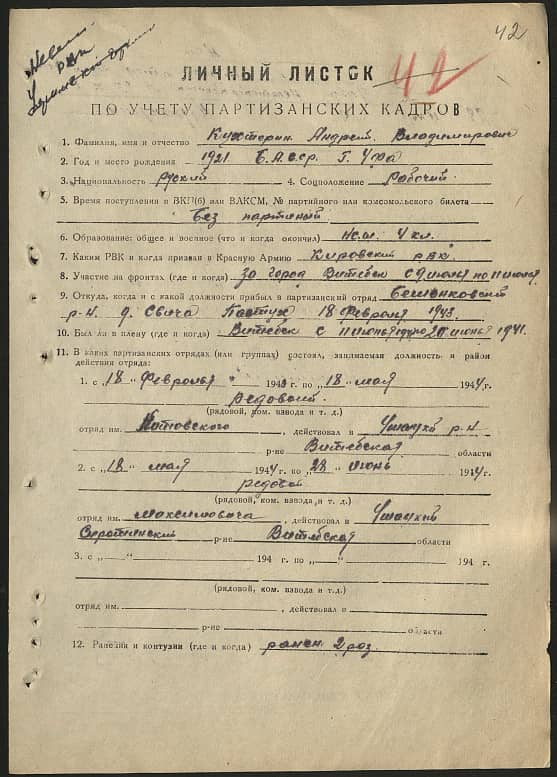 42
РВК
ЛИЧНЫЙ ЛИСТОК 42
ПО УЧЕТУ ПАРТИЗАНСКИХ КАДРОВ
1. Фамилия, имя и отчество Кухтерин Андрей Владимирович
2. Год и место рождения 1921 Б.А.ССР. Г. Уфа
3. Национальность Руский 4. Соцположение Рабочий
5. Время поступления в ВКП(б) или ВЛКСМ, № партийного или комсомольского билета
Без партийный
6. Образование: общее и военное (что и когда окончил) 4 кл.
7. Каким РВК и когда призван в Красную Армию Кировский РВК.
8. Участие на фронтах (где и когда) За город Витебск с 9 июля по 11 июля
9. Откуда, когда и с какой должности прибыл в партизанский отряд Бешенковский
р-н. д. Свича Пастух 18 Февроля 1943.
10. Был ли в плену (где и когда) Витебск с 11 июня 20 июня 1941.
11. В каких партизанских отрядах (или группах) состоял, занимаемая должность и район
действия отряда:
1. с „18“ Февроля 1943 г. по „18“ май 1944 г.
Редовой
(рядовой, ком. взвода и т. д.)
отряд им. Котовского, действовал в Ушацкй р-н
р-не Витебская области
2. с „18“ май 1944 г. по „28“ июнь 1944 г.
редовой
(рядовой, ком. взвода и т. д.)
отряд им. Максимовича, действовал в Ушацкий
Сиротинский р-не Витебская области
3. с „—“ 194 г. по „—“ 194 г.
(рядовой, ком. взвода и т.д.)
отряд им. , действовал в
р-не области
12. Ранения и контузии (где и когда) ранен 2 роз.